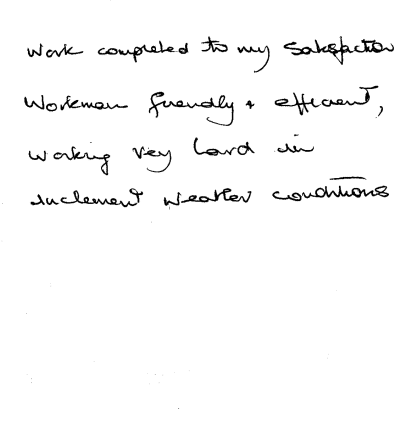 Work completed to my satisfaction
Workmen friendly + efficient,
working very hard in
inclement weather conditions